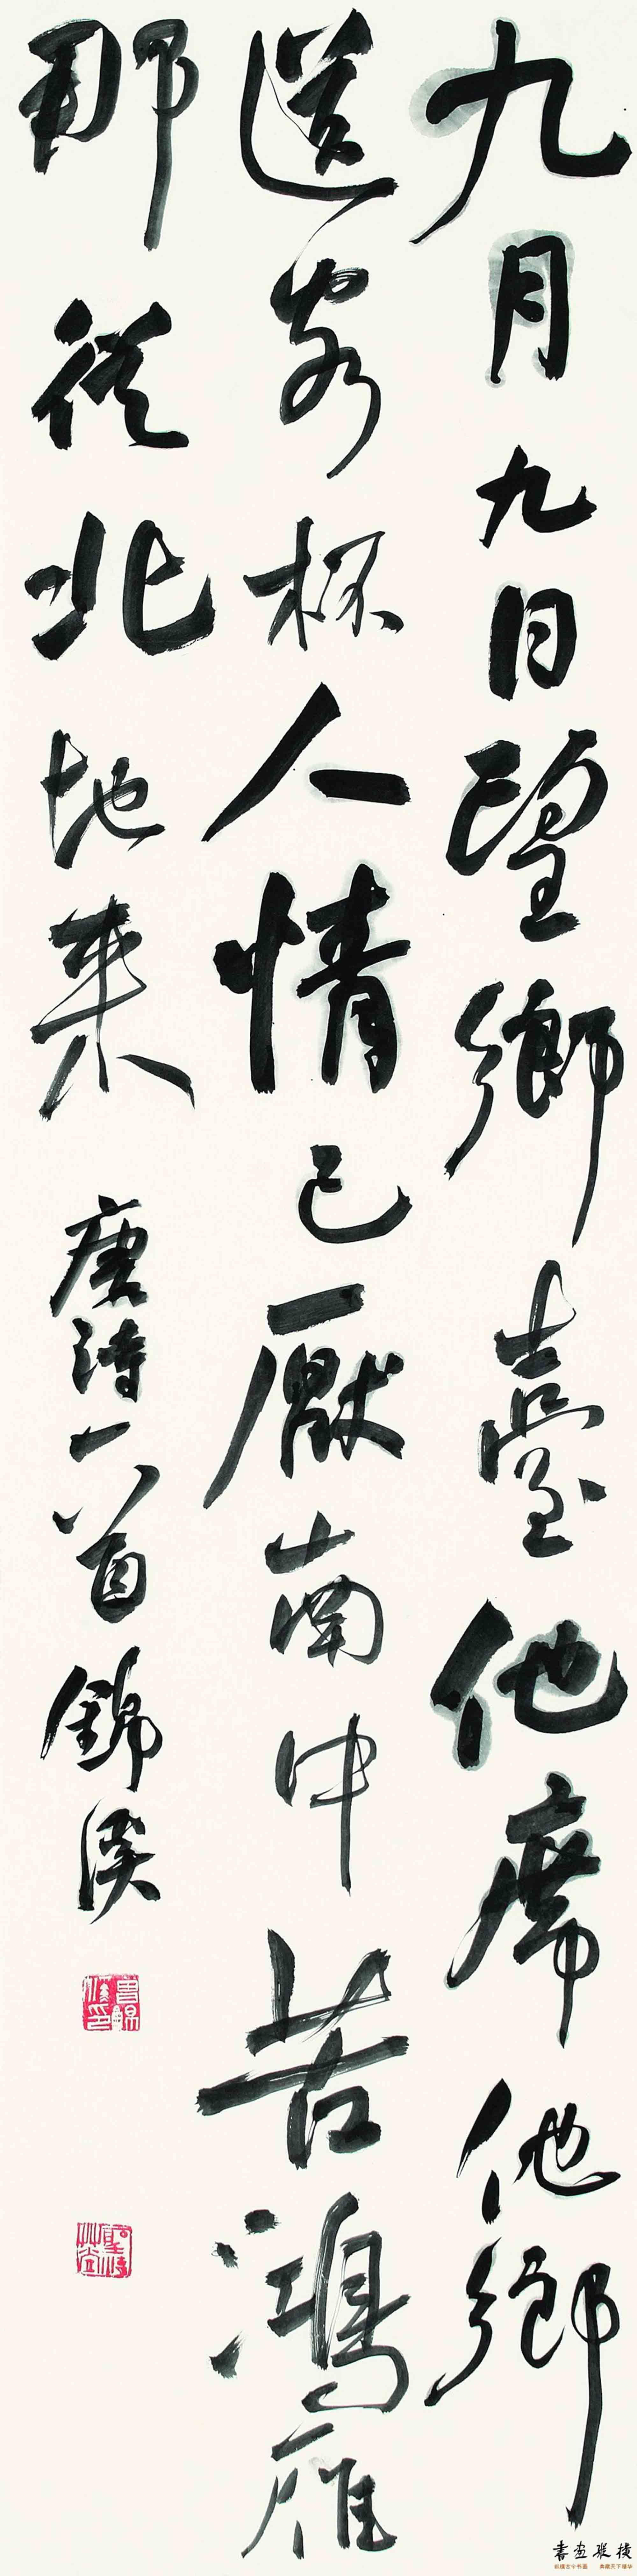 九月九日望鄉臺他席他鄉
送客杯人情已厭南中苦鴻雁
那從北地来
唐詩一首錦溪
書画縱橫